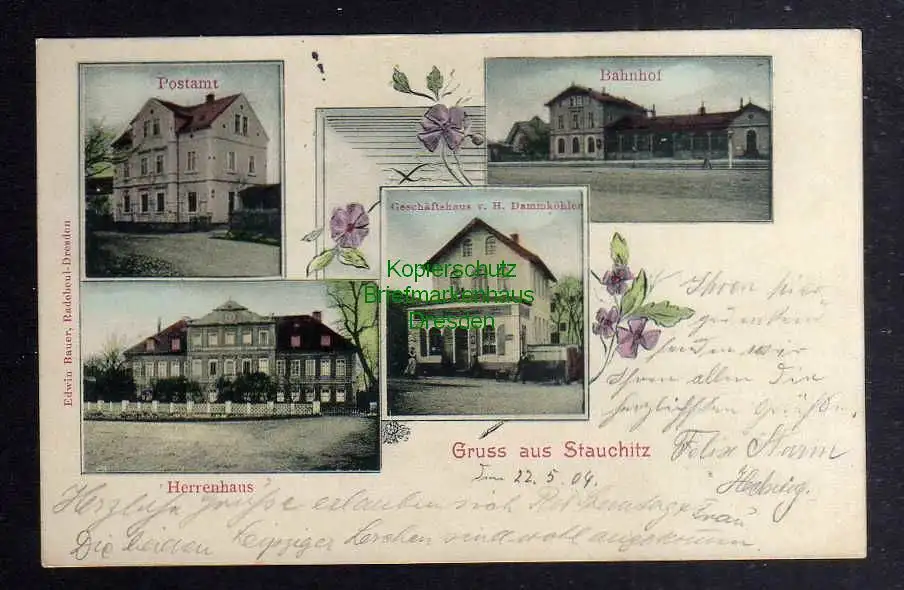 Postamt
Bahnhof
Geschäftshaus v. H. Dammköhler
Kopierschutz
Briefmarkenhaus
Dresden
Edwin Bauer, Radebeul-Dresden
Herrenhaus
Gruss aus Stauchitz
22. 5. 04.
Ihren hier
gedenkend
senden wir
Ihnen allen die
herzlichsten Grüße.
Felix
Hedwig.
Herzliche Grüße erlauben sich
Frau
Die beiden Leipziger Lerchen sind wohl angekommen.